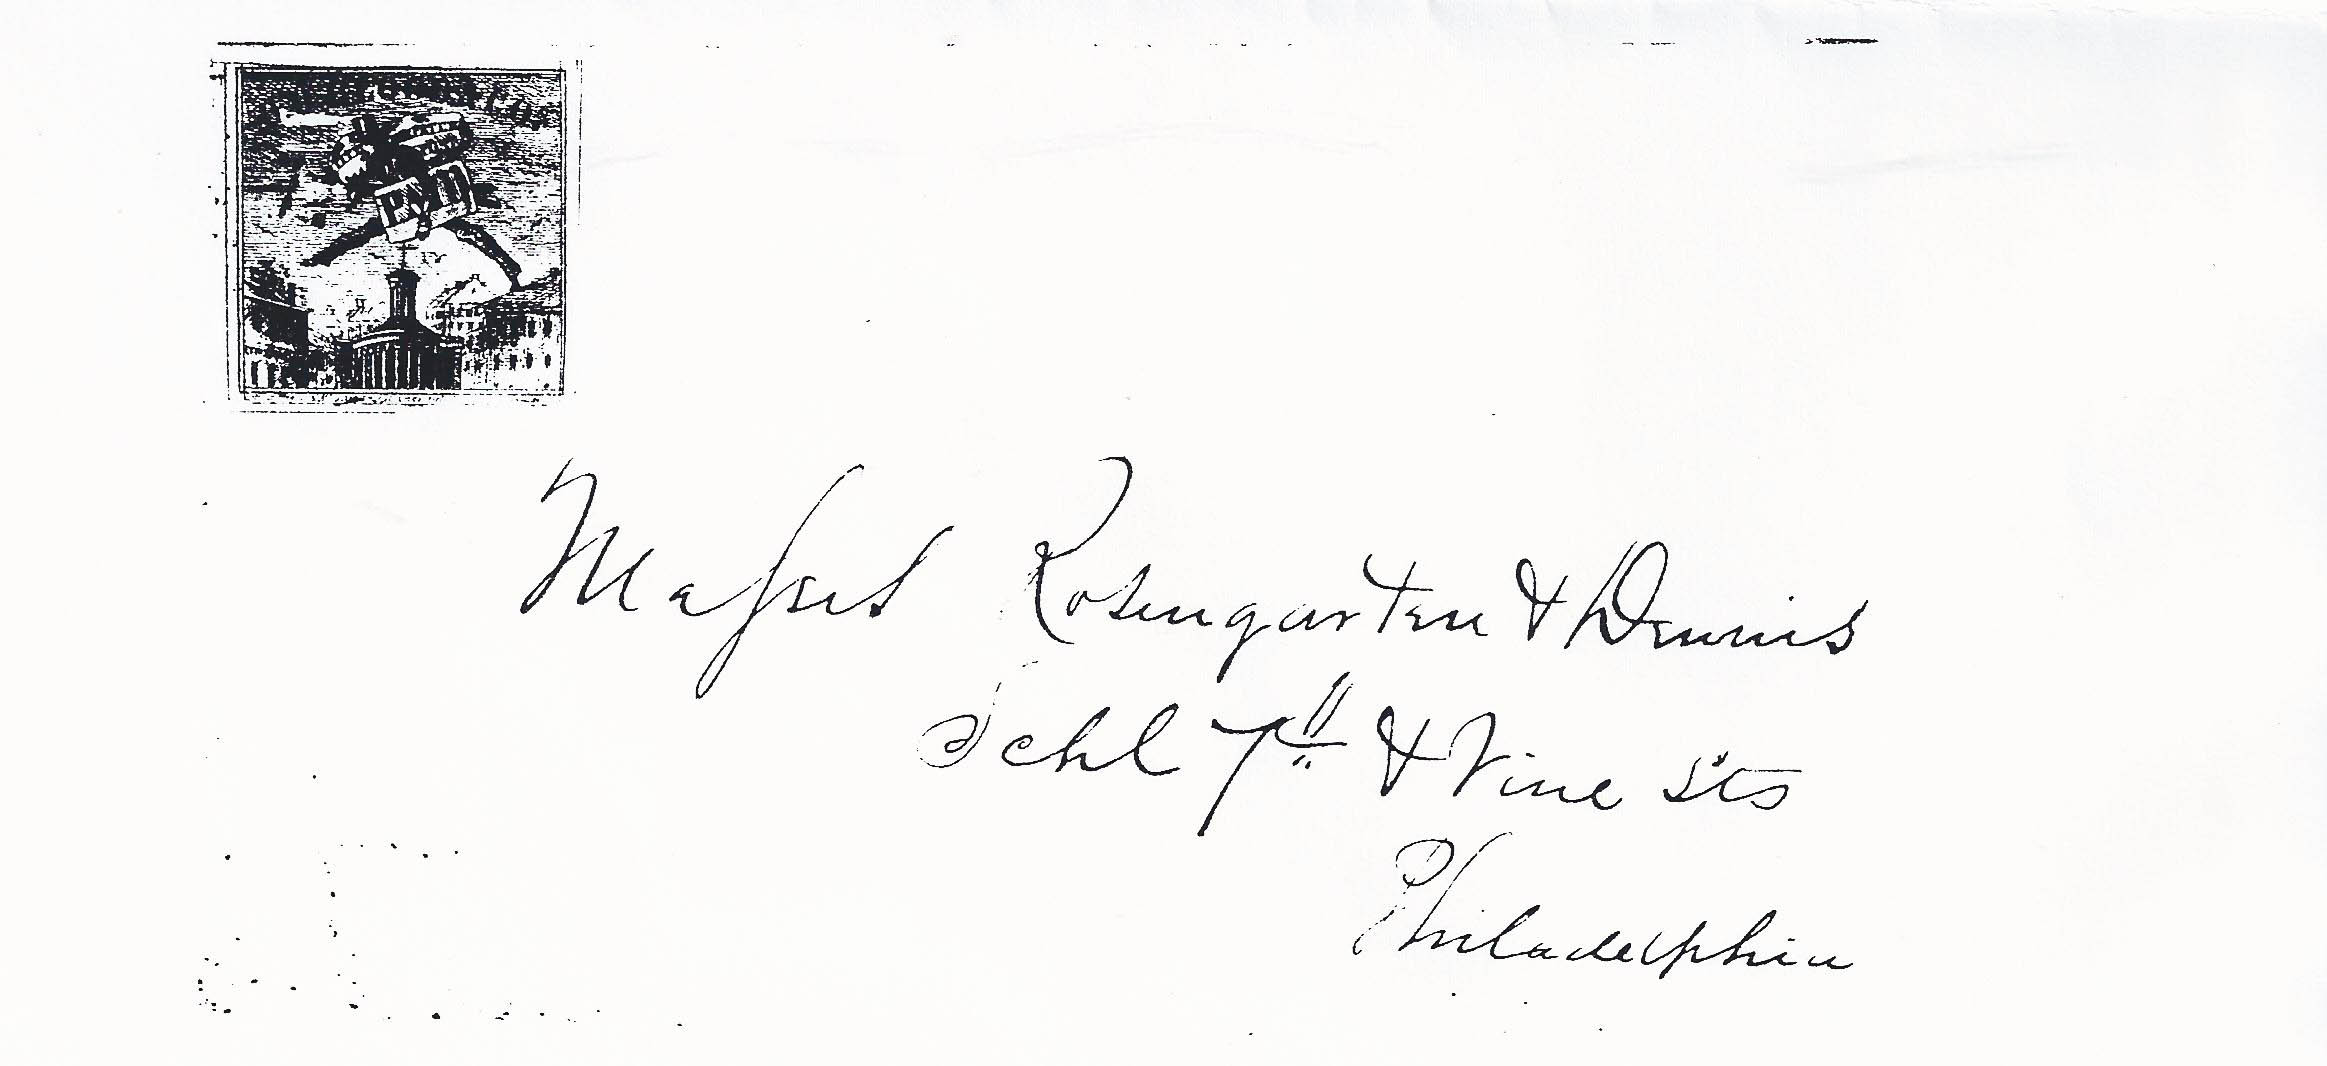 PAID
Messrs Rosengarten & Dennis
Schl 7th & Vine Sts
Philadelphia